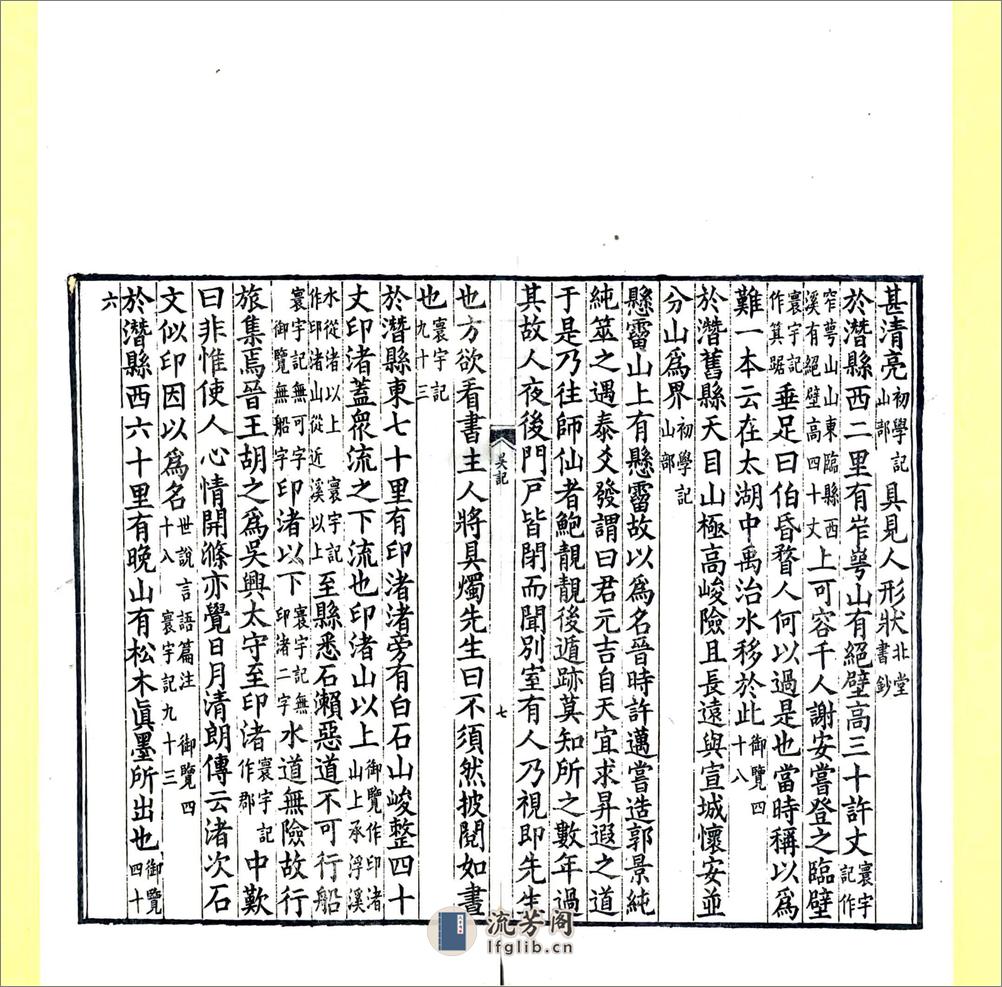 甚清亮初學記山部具見人形狀北堂書鈔
於潛縣西二里有岝崿山有絕壁高三十許丈寰宇記作
窄萼山山東臨縣西溪有絕壁高四十丈上可容千人謝安嘗登之臨壁
寰宇記作箕踞垂足曰伯昏瞀人何以過是也當時稱以爲
難一本云在太湖中禹治水移於此御覽四十八
於潛舊縣天目山極高峻險且長遠與宣城懷安並
分山爲界初學記山部
懸霤山上有懸霤故以爲名晉時許邁嘗造郭景純
純筮之遇泰爻發謂曰君元吉自天宜求昇遐之道
于是乃往師仙者鮑靚靚後遁跡莫知所之數年過
其故人夜後門戸皆閉而聞別室有人乃視即先生
吴記
七
也方欲看書主人將具燭先生曰不須然披閱如晝
也寰宇記九十三
於潛縣東七十里有印渚渚旁有白石山峻整四十
丈印渚蓋衆流之下流也印渚山以上御覽作印渚山上承浮溪
水從渚以上寰宇記作印渚山從近溪以上至縣悉石瀨惡道不可行船
寰宇記無可字御覽無船字印渚以下寰宇記無印渚二字水道無險故行
旅集焉晉王胡之爲吳興太守至印渚寰宇記作郡中歎
曰非惟使人心情開滌亦覺日月清朗傳云渚次石
文似印因以爲名世說言語篇注御覽四十八寰宇記九十三
於潛縣西六十里有晚山有松木眞墨所出也御覽四十
六
流芳阁
lfglib.cn